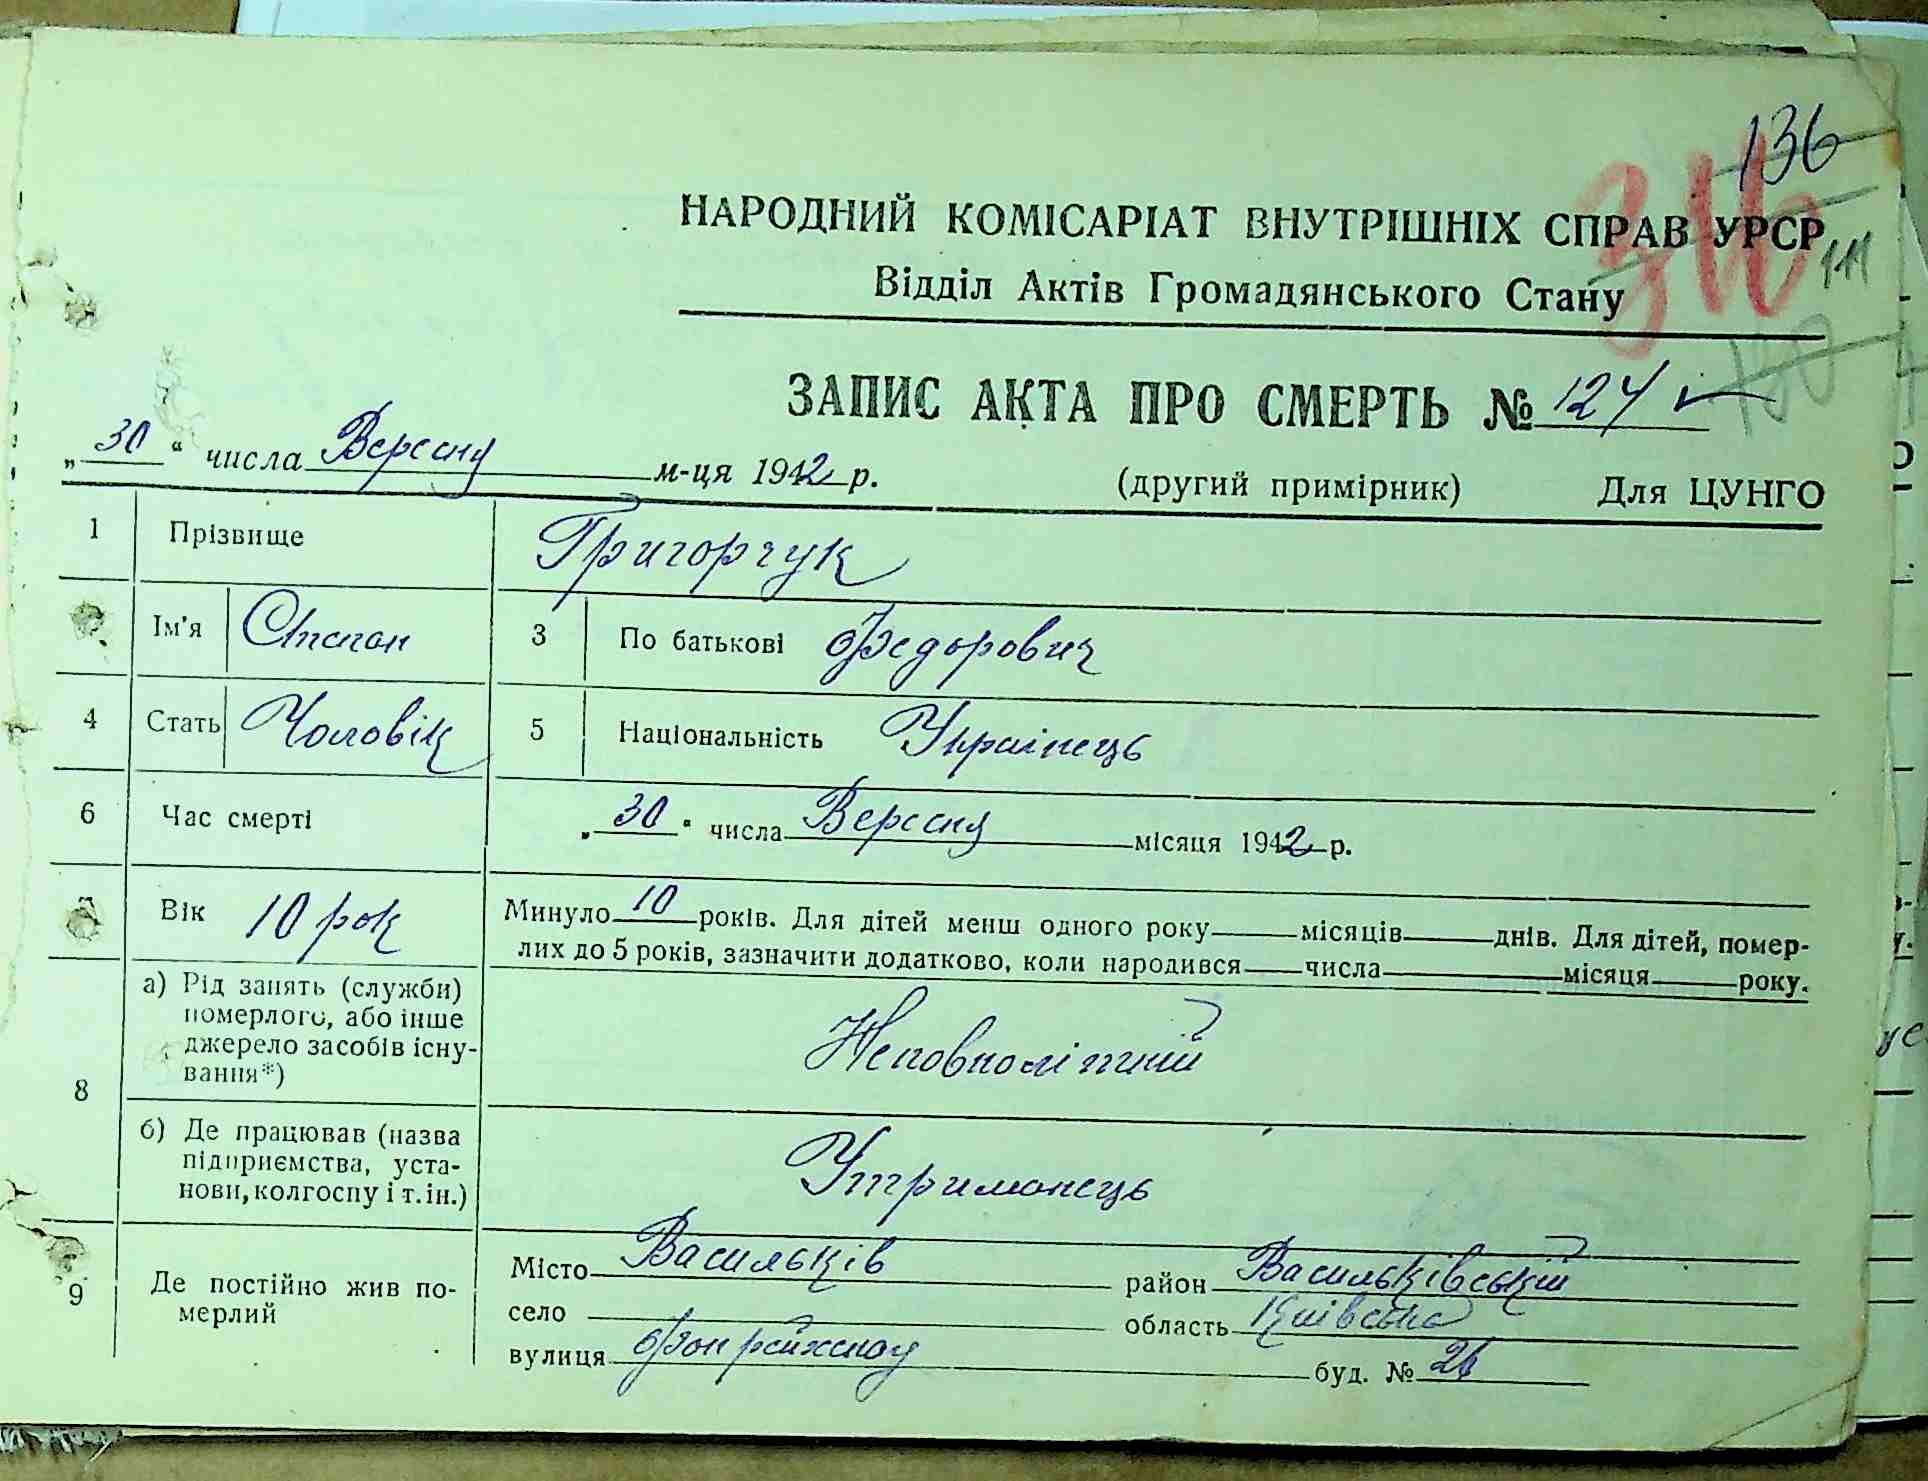 136
316
НАРОДНИЙ КОМІСАРІАТ ВНУТРІШНІХ СПРАВ УРСР
111
Відділ Актів Громадянського Стану
ЗАПИС АКТА ПРО СМЕРТЬ № 124
„30“ числа Вересня м-ця 1942 р. (другий примірник) Для ЦУНГО
1 Прізвище Григорчук
Ім'я Степан 3 По батькові Федорович
4 Стать Чоловік 5 Національність Українець
6 Час смерті „30“ числа Вересня місяця 1942 р.
7 Вік 10 рок Минуло 10 років. Для дітей менш одного року місяців днів. Для дітей, помер-
лих до 5 років, зазначити додатково, коли народився числа місяця року.
8 а) Рід занять (служби)
померлого, або інше
джерело засобів існу-
вання*)
Неповнолітній
б) Де працював (назва
підприємства, уста-
нови, колгоспу і т. ін.)
Утриманець
9 Де постійно жив по-
мерлий
Місто Васильків район Васильківський
село область Київська
вулиця буд. № 26